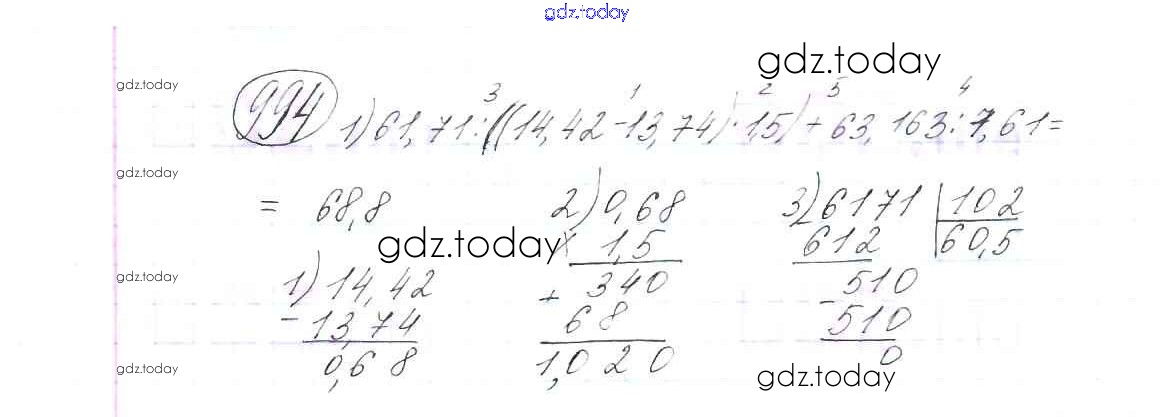 gdz.today
gdz.today
gdz.today
994 1) 61,71 : ((14,42 - 13,74) · 1,5) + 63,163 : 7,61 =
3 1 2 5 4
gdz.today
= 68,8 2) 0,68 3) 6171 | 102
gdz.today × 1,5 612 60,5
gdz.today 1) 14,42 + 340 - 510
- 13,74 68 510
0,68 1,020 0
gdz.today gdz.today